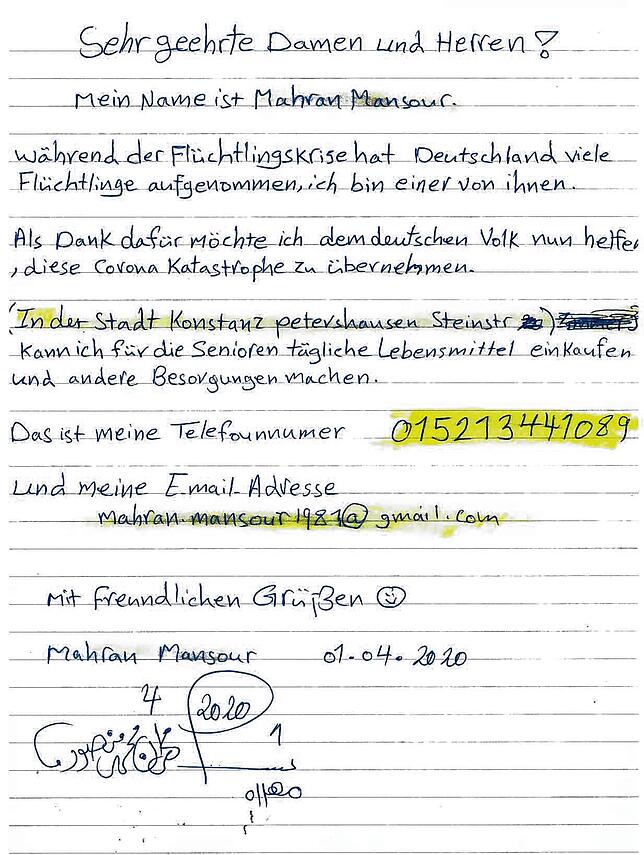 Sehr geehrte Damen und Herren!
Mein Name ist Mahran Mansour.
während der Flüchtlingskrise hat Deutschland viele
Flüchtlinge aufgenommen, ich bin einer von ihnen.
Als Dank dafür möchte ich dem deutschen Volk nun helfen
, diese Corona Katastrophe zu übernehmen.
(In der Stadt Konstanz petershausen Steinstr )
kann ich für die Senioren tägliche Lebensmittel einkaufen
und andere Besorgungen machen.
Das ist meine Telefounnumer 015213441089
und meine Email-Adresse
mahran.mansour1981@gmail.com
Mit freundlichen Grüßen ☺
Mahran Mansour 01.04.2020
4 2020
1